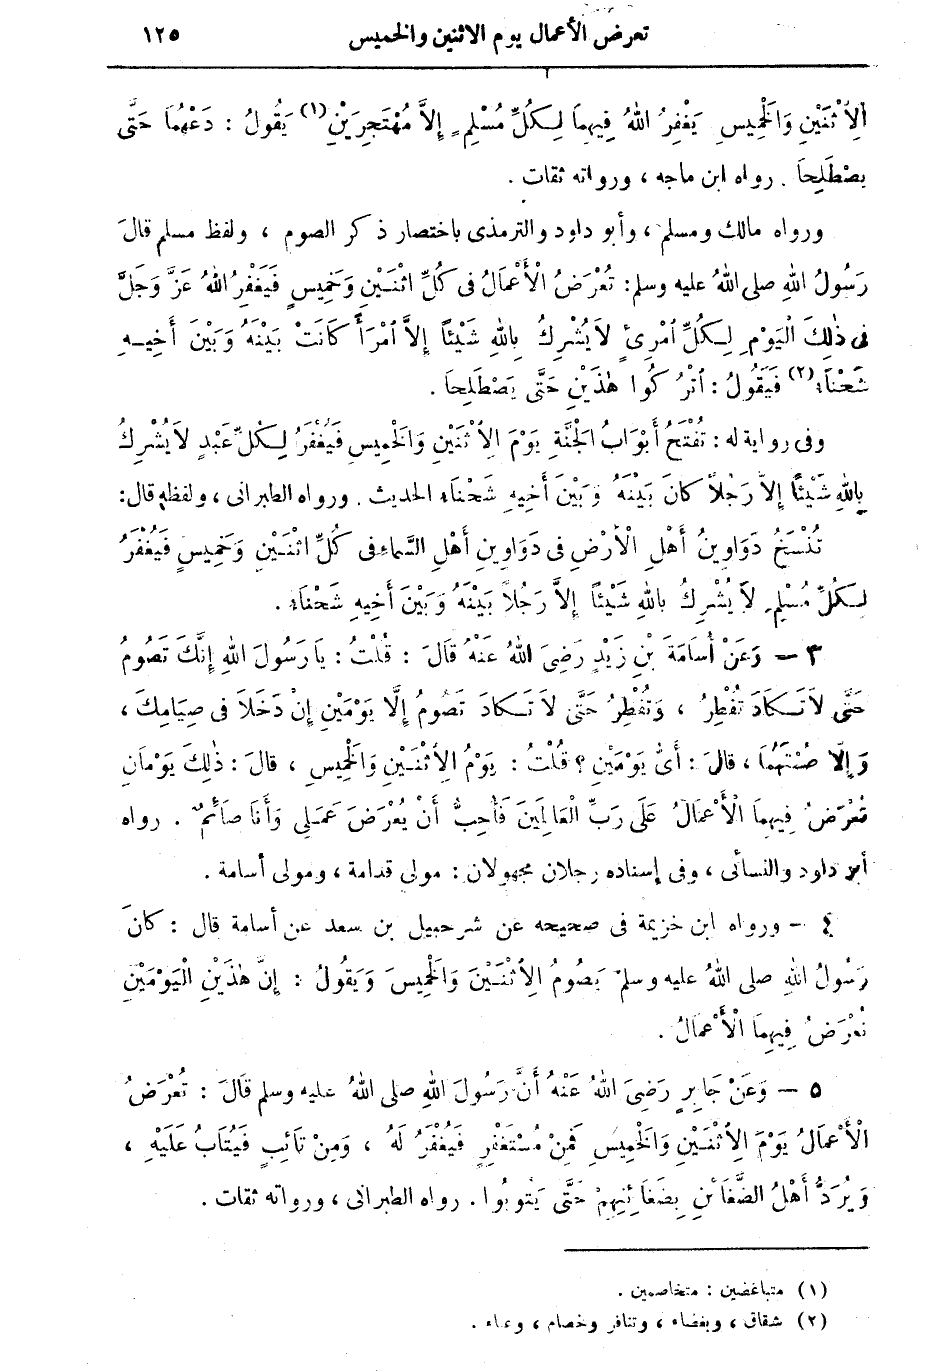 تعرض الأعمال يوم الاثنين والخميس ١٢٥
الِاثْنَيْنِ وَالْخَمِيسِ يَغْفِرُ اللهُ فِيهِمَا لِكُلِّ مُسْلِمٍ إِلَّا مُهْتَجِرَيْنِ (١) يَقُولُ : دَعْهُمَا حَتَّى
يَصْطَلِحَا . رواه ابن ماجه ، ورواته ثقات .
ورواه مالك ومسلم ، وأبو داود والترمذى باختصار ذكر الصوم ، ولفظ مسلم قالَ
رَسُولُ اللهِ صلى اللهُ عليه وسلم : تُعْرَضُ الْأَعْمَالُ فى كُلِّ اثْنَيْنِ وَخَمِيسٍ فَيَغْفِرُ اللهُ عَزَّ وَجَلَّ
فى ذٰلِكَ الْيَوْمِ لِكُلِّ امْرِئٍ لَا يُشْرِكُ بِاللهِ شَيْئاً إِلَّا امْرَأً كَانَتْ بَيْنَهُ وَبَيْنَ أَخِيهِ
شَحْنَاءُ (٢) فَيَقُولُ : اتْرُكُوا هٰذَيْنِ حَتَّى يَصْطَلِحَا .
وفى رواية له : تُفْتَحُ أَبْوَابُ الْجَنَّةِ يَوْمَ الِاثْنَيْنِ وَالْخَمِيسِ فَيُغْفَرُ لِكُلِّ عَبْدٍ لَا يُشْرِكُ
بِاللهِ شَيْئاً إِلَّا رَجُلاً كَانَ بَيْنَهُ وَبَيْنَ أَخِيهِ شَحْنَاءُ الحديث . ورواه الطبرانى ، ولفظه قال :
تُنْسَخُ دَوَاوِينُ أَهْلِ الْأَرْضِ فى دَوَاوِينِ أَهْلِ السَّمَاءِ فى كُلِّ اثْنَيْنِ وَخَمِيسٍ فَيُغْفَرُ
لِكُلِّ مُسْلِمٍ لَا يُشْرِكُ بِاللهِ شَيْئاً إِلَّا رَجُلاً بَيْنَهُ وَبَيْنَ أَخِيهِ شَحْنَاءُ .
٣ - وَعَنْ أُسَامَةَ بْنِ زَيْدٍ رَضِىَ اللهُ عَنْهُ قَالَ : قُلْتُ : يَا رَسُولَ اللهِ إِنَّكَ تَصُومُ
حَتَّى لَا تَكَادَ تُفْطِرُ ، وَتُفْطِرُ حَتَّى لَا تَكَادَ تَصُومُ إِلَّا يَوْمَيْنِ إِنْ دَخَلَا فى صِيَامِكَ ،
وَإِلَّا صُمْتَهُمَا ، قالَ : أَىُّ يَوْمَيْنِ ؟ قُلْتُ : يَوْمُ الِاثْنَيْنِ وَالْخَمِيسِ ، قالَ : ذٰلِكَ يَوْمَانِ
تُعْرَضُ فِيهِمَا الْأَعْمَالُ عَلَى رَبِّ الْعَالَمِينَ فَأُحِبُّ أَنْ يُعْرَضَ عَمَلِى وَأَنَا صَائِمٌ . رواه
أبو داود والنسائى ، وفى إسناده رجلان مجهولان : مولى قدامة ، ومولى أسامة .
٤ - ورواه ابن خزيمة فى صحيحه عن شرحبيل بن سعد عن أسامة قال : كانَ
رَسُولُ اللهِ صلى اللهُ عليه وسلمَ يَصُومُ الِاثْنَيْنَ وَالْخَمِيسَ وَيَقُولُ : إِنَّ هٰذَيْنِ الْيَوْمَيْنِ
تُعْرَضُ فِيهِمَا الْأَعْمَالُ .
٥ - وَعَنْ جَابِرٍ رَضِىَ اللهُ عَنْهُ أَنَّ رَسُولَ اللهِ صلى اللهُ عليه وسلم قَالَ : تُعْرَضُ
الْأَعْمَالُ يَوْمَ الِاثْنَيْنِ وَالْخَمِيسِ فَمِنْ مُسْتَغْفِرٍ فَيُغْفَرُ لَهُ ، وَمِنْ تَائِبٍ فَيُتَابُ عَلَيْهِ ،
وَيُرَدُّ أَهْلُ الضَّغَائِنِ بِضَغَائِنِهِمْ حَتَّى يَتُوبُوا . رواه الطبرانى ، ورواته ثقات .
(١) متباغضين : متخاصمين .
(٢) شقاق ، وبغضاء ، وتنافر وخصام ، وعداء .